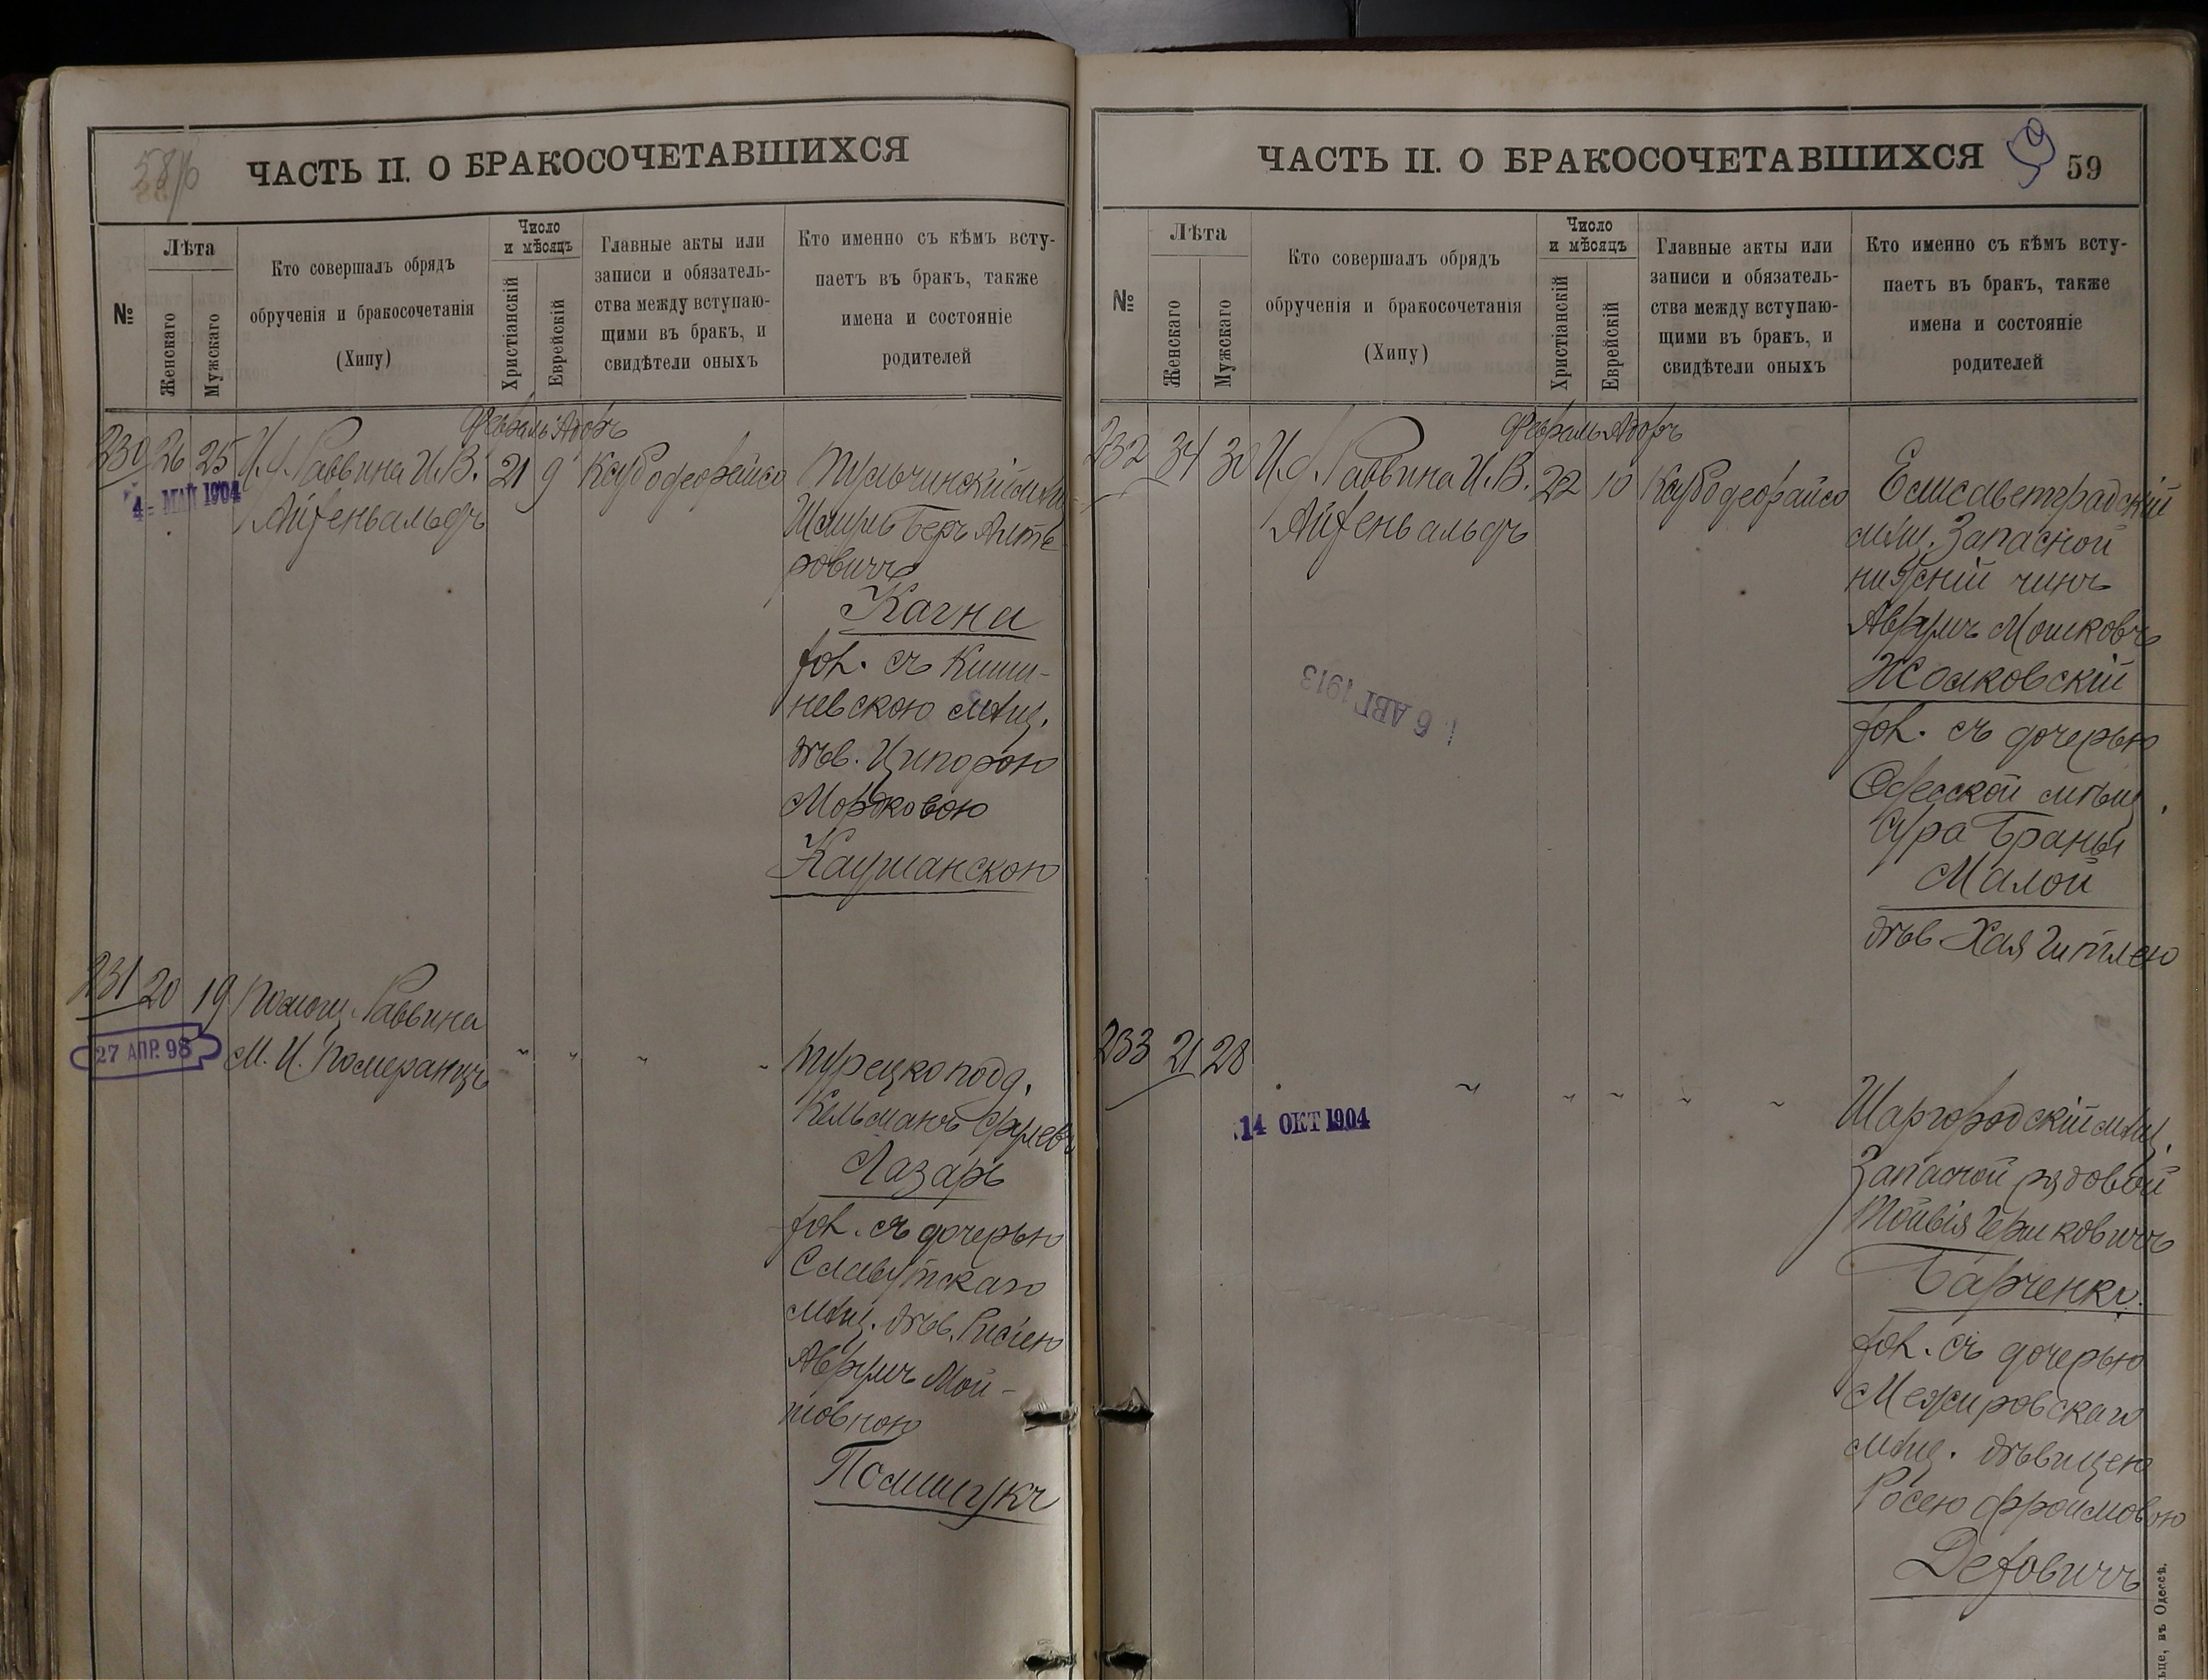 58/б
ЧАСТЬ II. О БРАКОСОЧЕТАВШИХСЯ
№
Лѣта
Женскаго
Мужскаго
Кто совершалъ обрядъ
обрученія и бракосочетанія
(Хипу)
Число
и мѣсяцъ
Христіанскій
Еврейскій
Главные акты или
записи и обязатель-
ства между вступаю-
щими въ бракъ, и
свидѣтели оныхъ
Кто именно съ кѣмъ всту-
паетъ въ бракъ, также
имена и состояніе
родителей
Февраль Адоръ
230 26 25 И. д. Раввина И. В.
Айзенвальдъ
21 9
4 - МАЙ 1904
Шмуль Беръ Алте-
ровичъ
Кагна
хол. съ Киши-
невскою мѣщ.
дѣв. Ципорою
Мордковою
Каушанскою
231 20 19 Помощ. Раввина
М. И. Померанцъ
27 АПР. 98
" " " "
турецкопод.
Кельманъ Сруlевъ
Лазаръ
хол. съ дочерью
Славутскаго
мѣщ. дѣв. Рисею
Аврумъ Мой-
товною
Полищукъ
ЧАСТЬ II. О БРАКОСОЧЕТАВШИХСЯ
59
59
№
Лѣта
Женскаго
Мужскаго
Кто совершалъ обрядъ
обрученія и бракосочетанія
(Хипу)
Число
и мѣсяцъ
Христіанскій
Еврейскій
Главные акты или
записи и обязатель-
ства между вступаю-
щими въ бракъ, и
свидѣтели оныхъ
Кто именно съ кѣмъ всту-
паетъ въ бракъ, также
имена и состояніе
родителей
Февраль Адоръ
232 34 30 И. д. Раввина И. В.
Айзенвальдъ
22 10
6 АВГ 1913
Елисаветградскій
мѣщ. Запасной
нижній чинъ
Аврумъ Мошковъ
Жолковскій
хол. съ дочерью
Одесской мѣщ.
Сура Браны
Малой
дѣв Хая Гитлею
233 21 28
14 ОКТ 1904
" " " " "
Шаргородскій мѣщ.
Запасной рядовой
Тойвія Гершковичъ
Барченко
хол. съ дочерью
Межировскаго
мѣщ. дѣвицею
Росею Фроимовою
Деховичъ
въ Одессѣ.